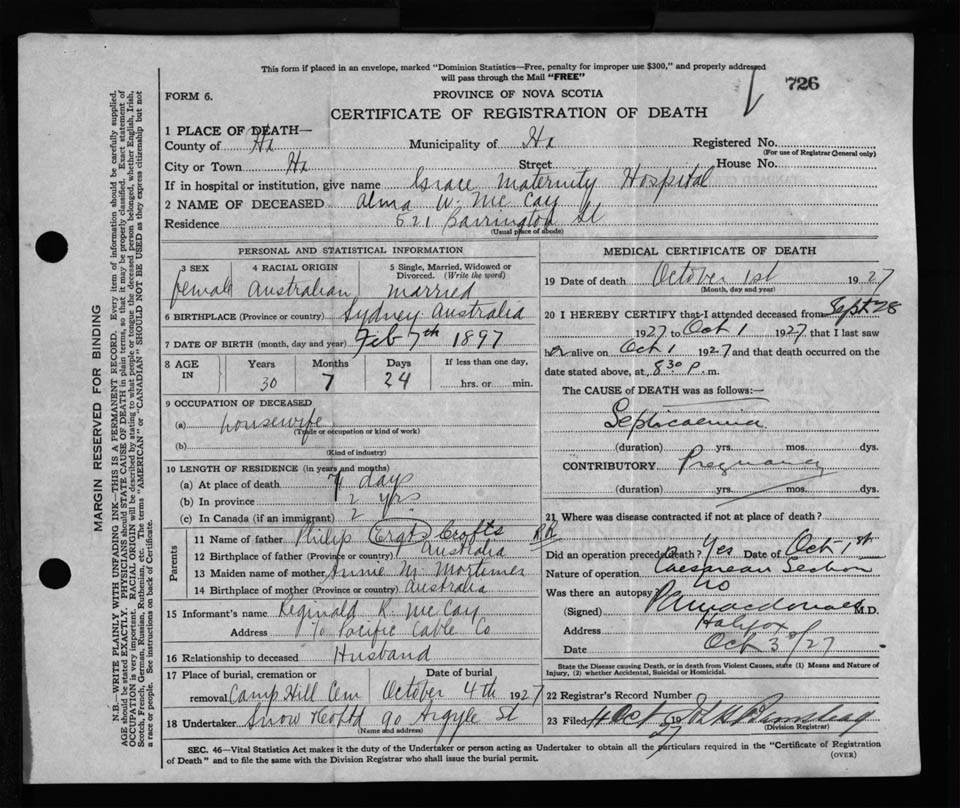 This form if placed in an envelope, marked "Dominion Statistics—Free, penalty for improper use $300," and properly addressed
will pass through the Mail "FREE"
726
FORM 6.
PROVINCE OF NOVA SCOTIA
CERTIFICATE OF REGISTRATION OF DEATH
1 PLACE OF DEATH—
County of Hx Municipality of Hx Registered No.
(For use of Registrar General only)
City or Town Hx Street House No.
If in hospital or institution, give name Grace Maternity Hospital
2 NAME OF DECEASED Alma W. McCay
Residence 521 Barrington St
(Usual place of abode)
PERSONAL AND STATISTICAL INFORMATION
3 SEX 4 RACIAL ORIGIN 5 Single, Married, Widowed or
Divorced. (Write the word)
female Australian married
6 BIRTHPLACE (Province or country) Sydney Australia
7 DATE OF BIRTH (month, day and year) Feb 7th 1897
8 AGE IN Years Months Days If less than one day,
30 7 24 hrs. or min.
9 OCCUPATION OF DECEASED
(a) housewife
(Trade or occupation or kind of work)
(b)
(Kind of industry)
10 LENGTH OF RESIDENCE (in years and months)
(a) At place of death days
(b) In province 2 yrs
(c) In Canada (if an immigrant) 2 "
Parents
11 Name of father Philip Crofts R.R.
12 Birthplace of father (Province or country) Australia
13 Maiden name of mother Annie M. Mortimer
14 Birthplace of mother (Province or country) Australia
15 Informant's name Reginald R. McCay
Address c/o Pacific Cable Co
16 Relationship to deceased Husband
17 Place of burial, cremation or Date of burial
removal Camp Hill Cem October 4th 1927
18 Undertaker Snow Co Ltd 90 Argyle St
(Name and address)
MEDICAL CERTIFICATE OF DEATH
19 Date of death October 1st 1927
(Month, day and year)
20 I HEREBY CERTIFY that I attended deceased from Sept 28
1927 to Oct 1 1927, that I last saw
her alive on Oct 1 1927 and that death occurred on the
date stated above, at 8 30 p. m.
The CAUSE of DEATH was as follows:—
Septicaemia
(duration) yrs. mos. dys.
CONTRIBUTORY Pregnancy
(duration) yrs. mos. dys.
21 Where was disease contracted if not at place of death?
Did an operation precede death? Yes Date of Oct 1st
Nature of operation Caesarean Section
Was there an autopsy? No
(Signed) Macdonald M.D.
Address Halifax
Date Oct 3rd/27
State the Disease causing Death, or in death from Violent Causes, state (1) Means and Nature of
Injury, (2) whether Accidental, Suicidal or Homicidal.
22 Registrar's Record Number
23 Filed 4 Oct 19 27
(Division Registrar)
SEC. 46—Vital Statistics Act makes it the duty of the Undertaker or person acting as Undertaker to obtain all the particulars required in the "Certificate of Registration
of Death" and to file the same with the Division Registrar who shall issue the burial permit.
(OVER)
MARGIN RESERVED FOR BINDING
N.B.—WRITE PLAINLY WITH UNFADING INK—THIS IS A PERMANENT RECORD. Every item of information should be carefully supplied.
AGE should be stated EXACTLY. PHYSICIANS should STATE CAUSE OF DEATH in plain terms, so that it may be properly classified. Exact statement of
OCCUPATION is very important. RACIAL ORIGIN will be described by stating to what people or tongue the deceased person belonged, whether English, Irish,
Scotch, French, German, Russian, Ruthenian, etc. The terms "AMERICAN" or "CANADIAN" SHOULD NOT BE USED as they express citizenship but not
a race or people. See instructions on back of Certificate.